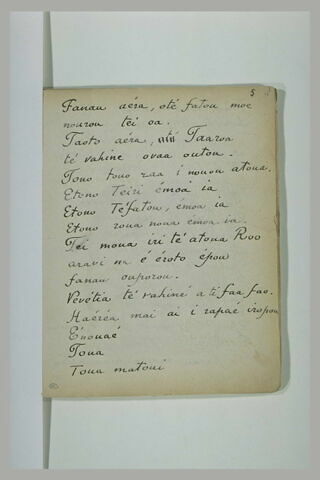 5
Fanau aéra, oté fatou moe
nourou téi oa.
Taoto aéra, até Taaroa
té vahine ovaa outou.
Tono tono raa i nouou atoua
Etono Teïri émoá ia
Etono Téfatou, émoa ia
Etono roua noua emoa ia.
Téi moua iri té atoua Roo
aravi na é éroto époú
fanau ouporou.
Vévétia té vahiné a té faa fao.
Haéréa mai ai i rapaé
Énouaé
Toua
Toua matoui